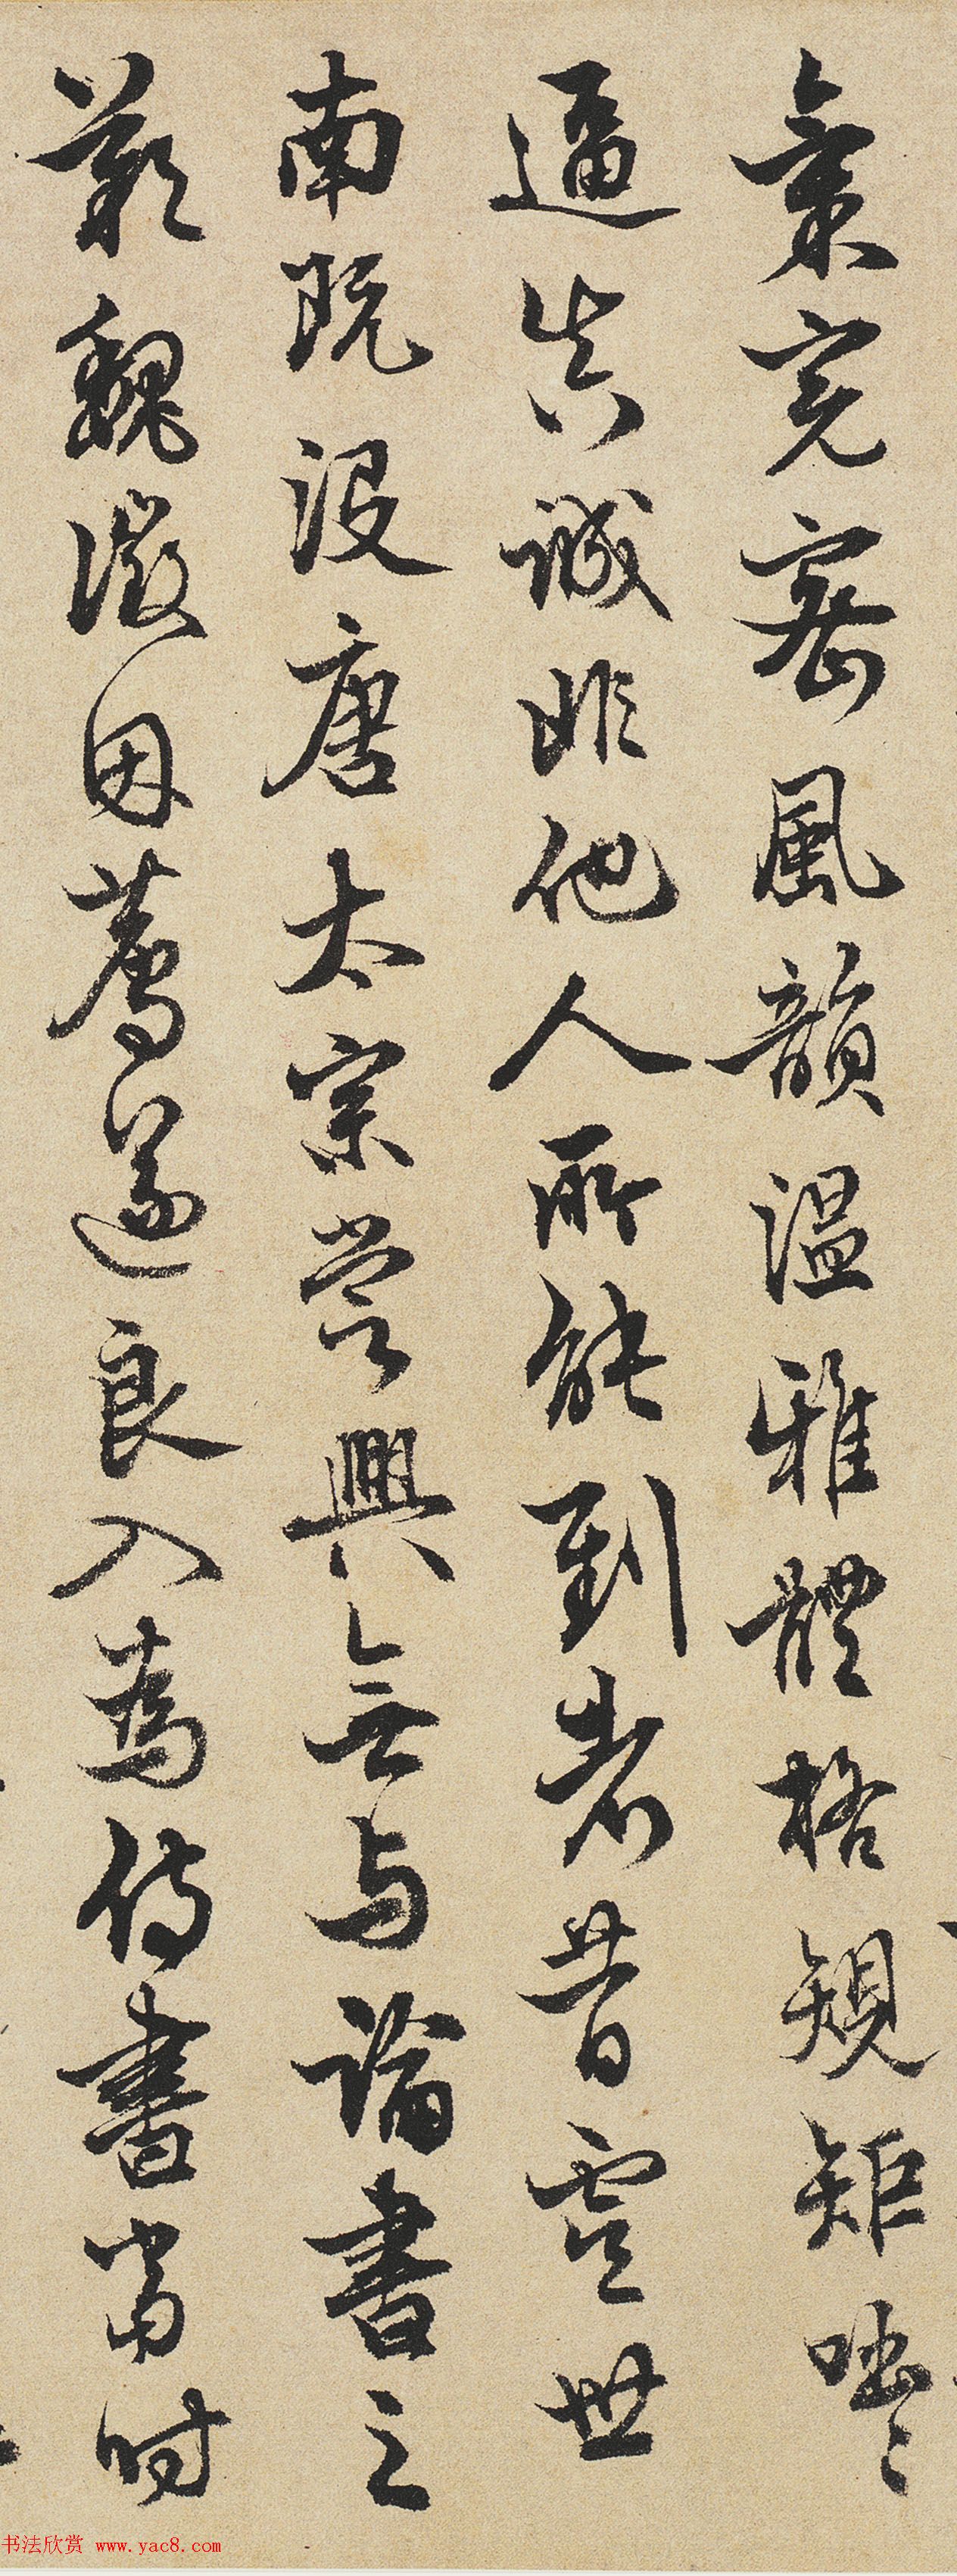 氣完密風韻溫雅體格規矩咄〻
逼真誠非他人所能到者昔虞世
南既沒唐太宗嘗興無与論書之
歎魏徵因薦遂良入為侍書當時
书法欣赏 www.yac8.com